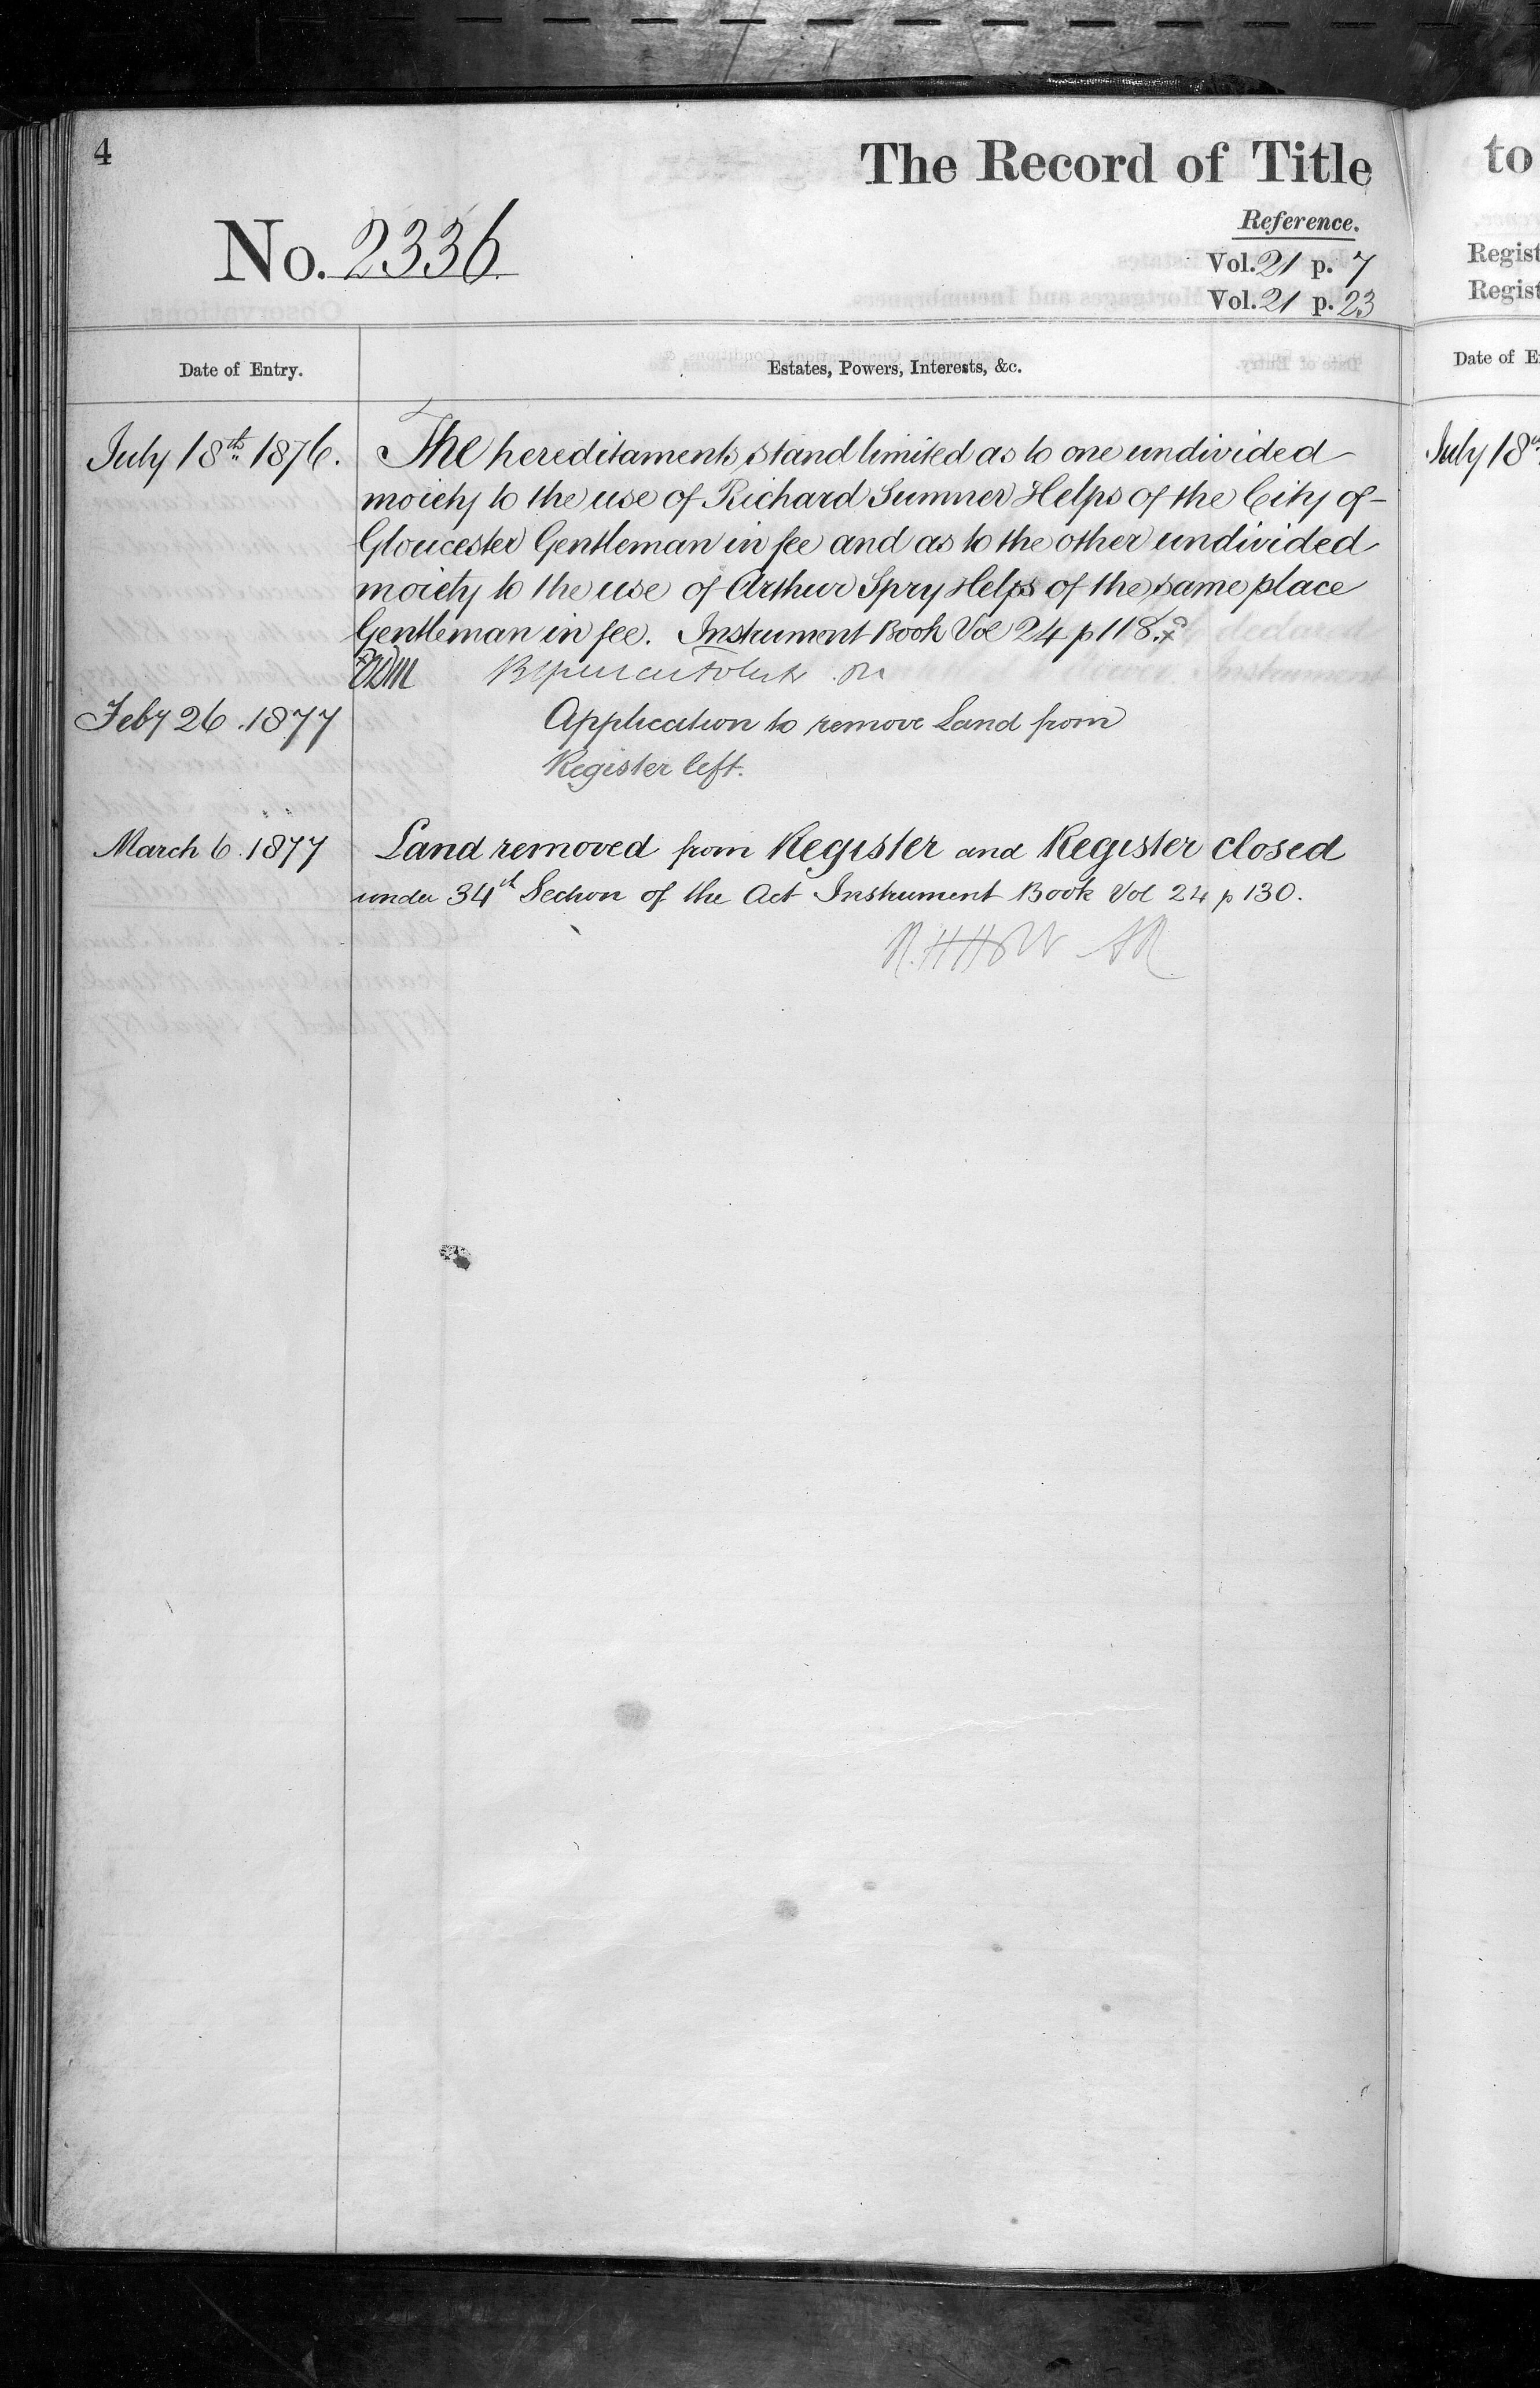 4
The Record of Title
to
No. 2336
Reference.
Vol. 21 p. 7
Vol. 21 p. 23
Regist
Regist
Date of Entry.
Estates, Powers, Interests, &c.
Date of E
July 18th 1876.
The hereditaments stand limited as to one undivided
moiety to the use of Richard Sumner Helps of the City of
Gloucester Gentleman in fee and as to the other undivided
moiety to the use of Arthur Spry Helps of the same place
Gentleman in fee. Instrument Book Vol 24 p 118.
July 18
Feby 26. 1877
Application to remove Land from
Register left.
March 6. 1877
Land removed from Register and Register closed
under 34th Section of the Act Instrument Book Vol 24 p 130.